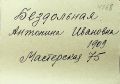 4768
Бездольная
Антонина Ивановна
1909
Мастерская 75